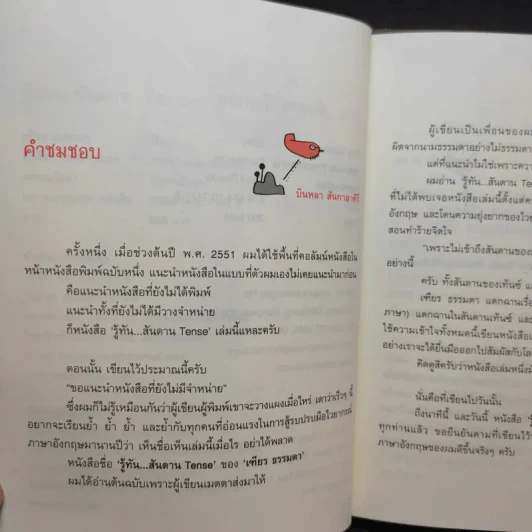 คำชมชอบ
บินหลา สันกาลาคีรี
ครั้งหนึ่ง เมื่อช่วงต้นปี พ.ศ. 2551 ผมได้ใช้พื้นที่คอลัมน์หนังสือใน
หน้าหนังสือพิมพ์ฉบับหนึ่ง แนะนำหนังสือในแบบที่ตัวผมเองไม่เคยแนะนำมาก่อน
คือแนะนำหนังสือที่ยังไม่ได้พิมพ์
แนะนำทั้งที่ยังไม่ได้มีวางจำหน่าย
ก็หนังสือ 'รู้ทัน...สันดาน Tense' เล่มนี้แหละครับ
ตอนนั้น เขียนไว้ประมาณนี้ครับ
"ขอแนะนำหนังสือที่ยังไม่มีจำหน่าย"
ซึ่งผมก็ไม่รู้เหมือนกันว่าผู้เขียนผู้พิมพ์เขาจะวางแผงเมื่อไหร่ เดาว่าเร็วๆ นี้
อยากจะเรียนย้ำ ย้ำ ย้ำ และย้ำกับทุกคนที่อ่อนแรงในการสู้รบปรบมือไวยากรณ์
ภาษาอังกฤษมานานปีว่า เห็นชื่อเห็นเล่มนี้เมื่อไร อย่าได้พลาด
หนังสือชื่อ 'รู้ทัน...สันดาน Tense' ของ 'เฑียร ธรรมดา'
ผมได้อ่านต้นฉบับเพราะผู้เขียนเมตตาส่งมาให้
ผู้เขียนเป็นเพื่อนของผม
ผิดจากนามธรรมดาอย่างไม่ธรรมดา
แต่ที่แนะนำไม่ใช่เพราะความ
ผมอ่าน 'รู้ทัน...สันดาน Tens
ที่ไม่ได้พบเจอหนังสือเล่มนี้ตั้งแต่
อังกฤษ และโดนความยุ่งยากของไว
สอนทำร้ายจิตใจ
"เพราะไม่เข้าถึงสันดานของ
อย่างนี้
ครับ ทั้งสันดานของเท้นซ์ และ
เฑียร ธรรมดา แตกฉานเรื่อ
ภาษา) แตกฉานในสันดานเท้นซ์ และ
ใช้ความเข้าใจทั้งหมดนี้เขียนหนังสือ
อย่างเราจะได้ยื่นมือออกไปสัมผัสกับ
คิดดูสิครับว่าหนังสือเล่มหนึ่ง
นั่นคือที่เขียนไปวันนั้น
ถึงนาทีนี้ และวันนี้ หนังสือ
ทุกท่านแล้ว ขอยืนยันตามที่เขียนไว้
ภาษาอังกฤษของผมดีขึ้นจริงๆ ครับ